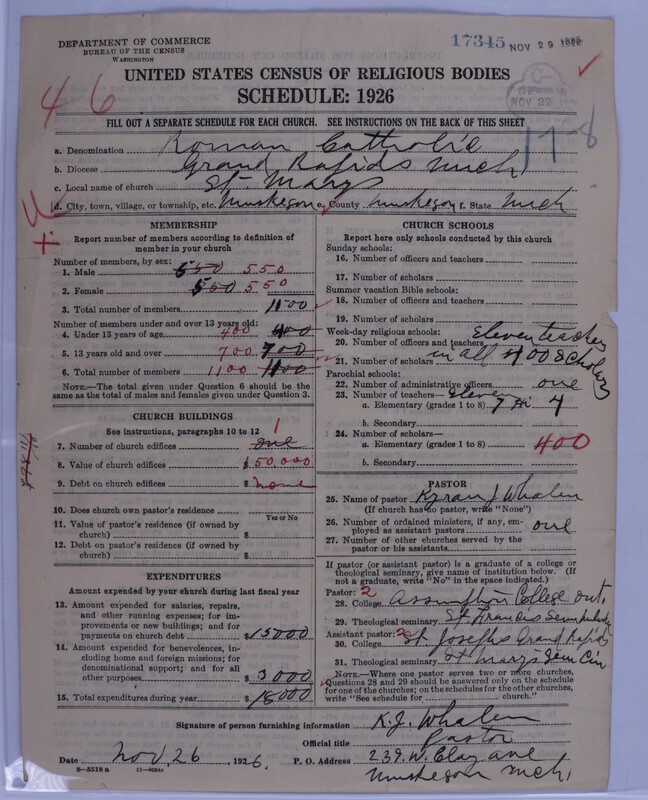 DEPARTMENT OF COMMERCE
BUREAU OF THE CENSUS
WASHINGTON
17345 NOV 29 1926
NOV 29
UNITED STATES CENSUS OF RELIGIOUS BODIES
SCHEDULE: 1926
46
FILL OUT A SEPARATE SCHEDULE FOR EACH CHURCH. SEE INSTRUCTIONS ON THE BACK OF THIS SHEET
178
a. Denomination Roman Catholic
b. Diocese Grand Rapids Mich
c. Local name of church St. Marys
d. City, town, village, or township, etc. Muskegon e. County Muskegon f. State Mich
MEMBERSHIP
Report number of members according to definition of member in your church
Number of members, by sex:
1. Male 550 550
2. Female 550 550
3. Total number of members 1100
Number of members under and over 13 years old:
4. Under 13 years of age 400 400
5. 13 years old and over 700 700
6. Total number of members 1100 1100
NOTE.—The total given under Question 6 should be the same as the total of males and females given under Question 3.
CHURCH BUILDINGS
See instructions, paragraphs 10 to 12
7. Number of church edifices one 1
8. Value of church edifices $ 50,000
9. Debt on church edifices $ none
10. Does church own pastor's residence
Yes or No
11. Value of pastor's residence (if owned by church) $
12. Debt on pastor's residence (if owned by church) $
EXPENDITURES
Amount expended by your church during last fiscal year
13. Amount expended for salaries, repairs, and other running expense; for improvements or new buildings; and for payments on church debt $ 15000
14. Amount expended for benevolences, including home and foreign missions; for denominational support; and for all other purposes $ 3000
15. Total expenditures during year $ 18000
CHURCH SCHOOLS
Report here only schools conducted by this church
Sunday schools:
16. Number of officers and teachers
17. Number of scholars
Summer vacation Bible schools:
18. Number of officers and teachers
19. Number of scholars
Week-day religious schools:
20. Number of officers and teachers Eleven teachers
21. Number of scholars in all 400 Scholars
Parochial schools:
22. Number of administrative officers one
23. Number of teachers— Eleven
a. Elementary (grades 1 to 8) 7 Hi 4
b. Secondary
24. Number of scholars—
a. Elementary (grades 1 to 8) 400
b. Secondary
PASTOR
25. Name of pastor Kyran J Whalen
(If church has no pastor, write "None")
26. Number of ordained ministers, if any, employed as assistant pastors one
27. Number of other churches served by the pastor or his assistants
If pastor (or assistant pastor) is a graduate of a college or theological seminary, give name of institution below. (If not a graduate, write "No" in the space indicated.)
Pastor: 2
28. College Assumption College Ont.
29. Theological seminary St Francis Sem
Assistant pastor: 2
30. College St Josephs Grand Rapids
31. Theological seminary St Mary's Sem Cin
NOTE.—Where one pastor serves two or more churches, Questions 28 and 29 should be answered only on the schedule for one of the churches; on the schedules for the other churches, write "See schedule for church."
Signature of person furnishing information K. J. Whalen
Official title Pastor
Date Nov, 26, 1926. P. O. Address 239. W. Clay ave
Muskegon Mich,
8—5518 a